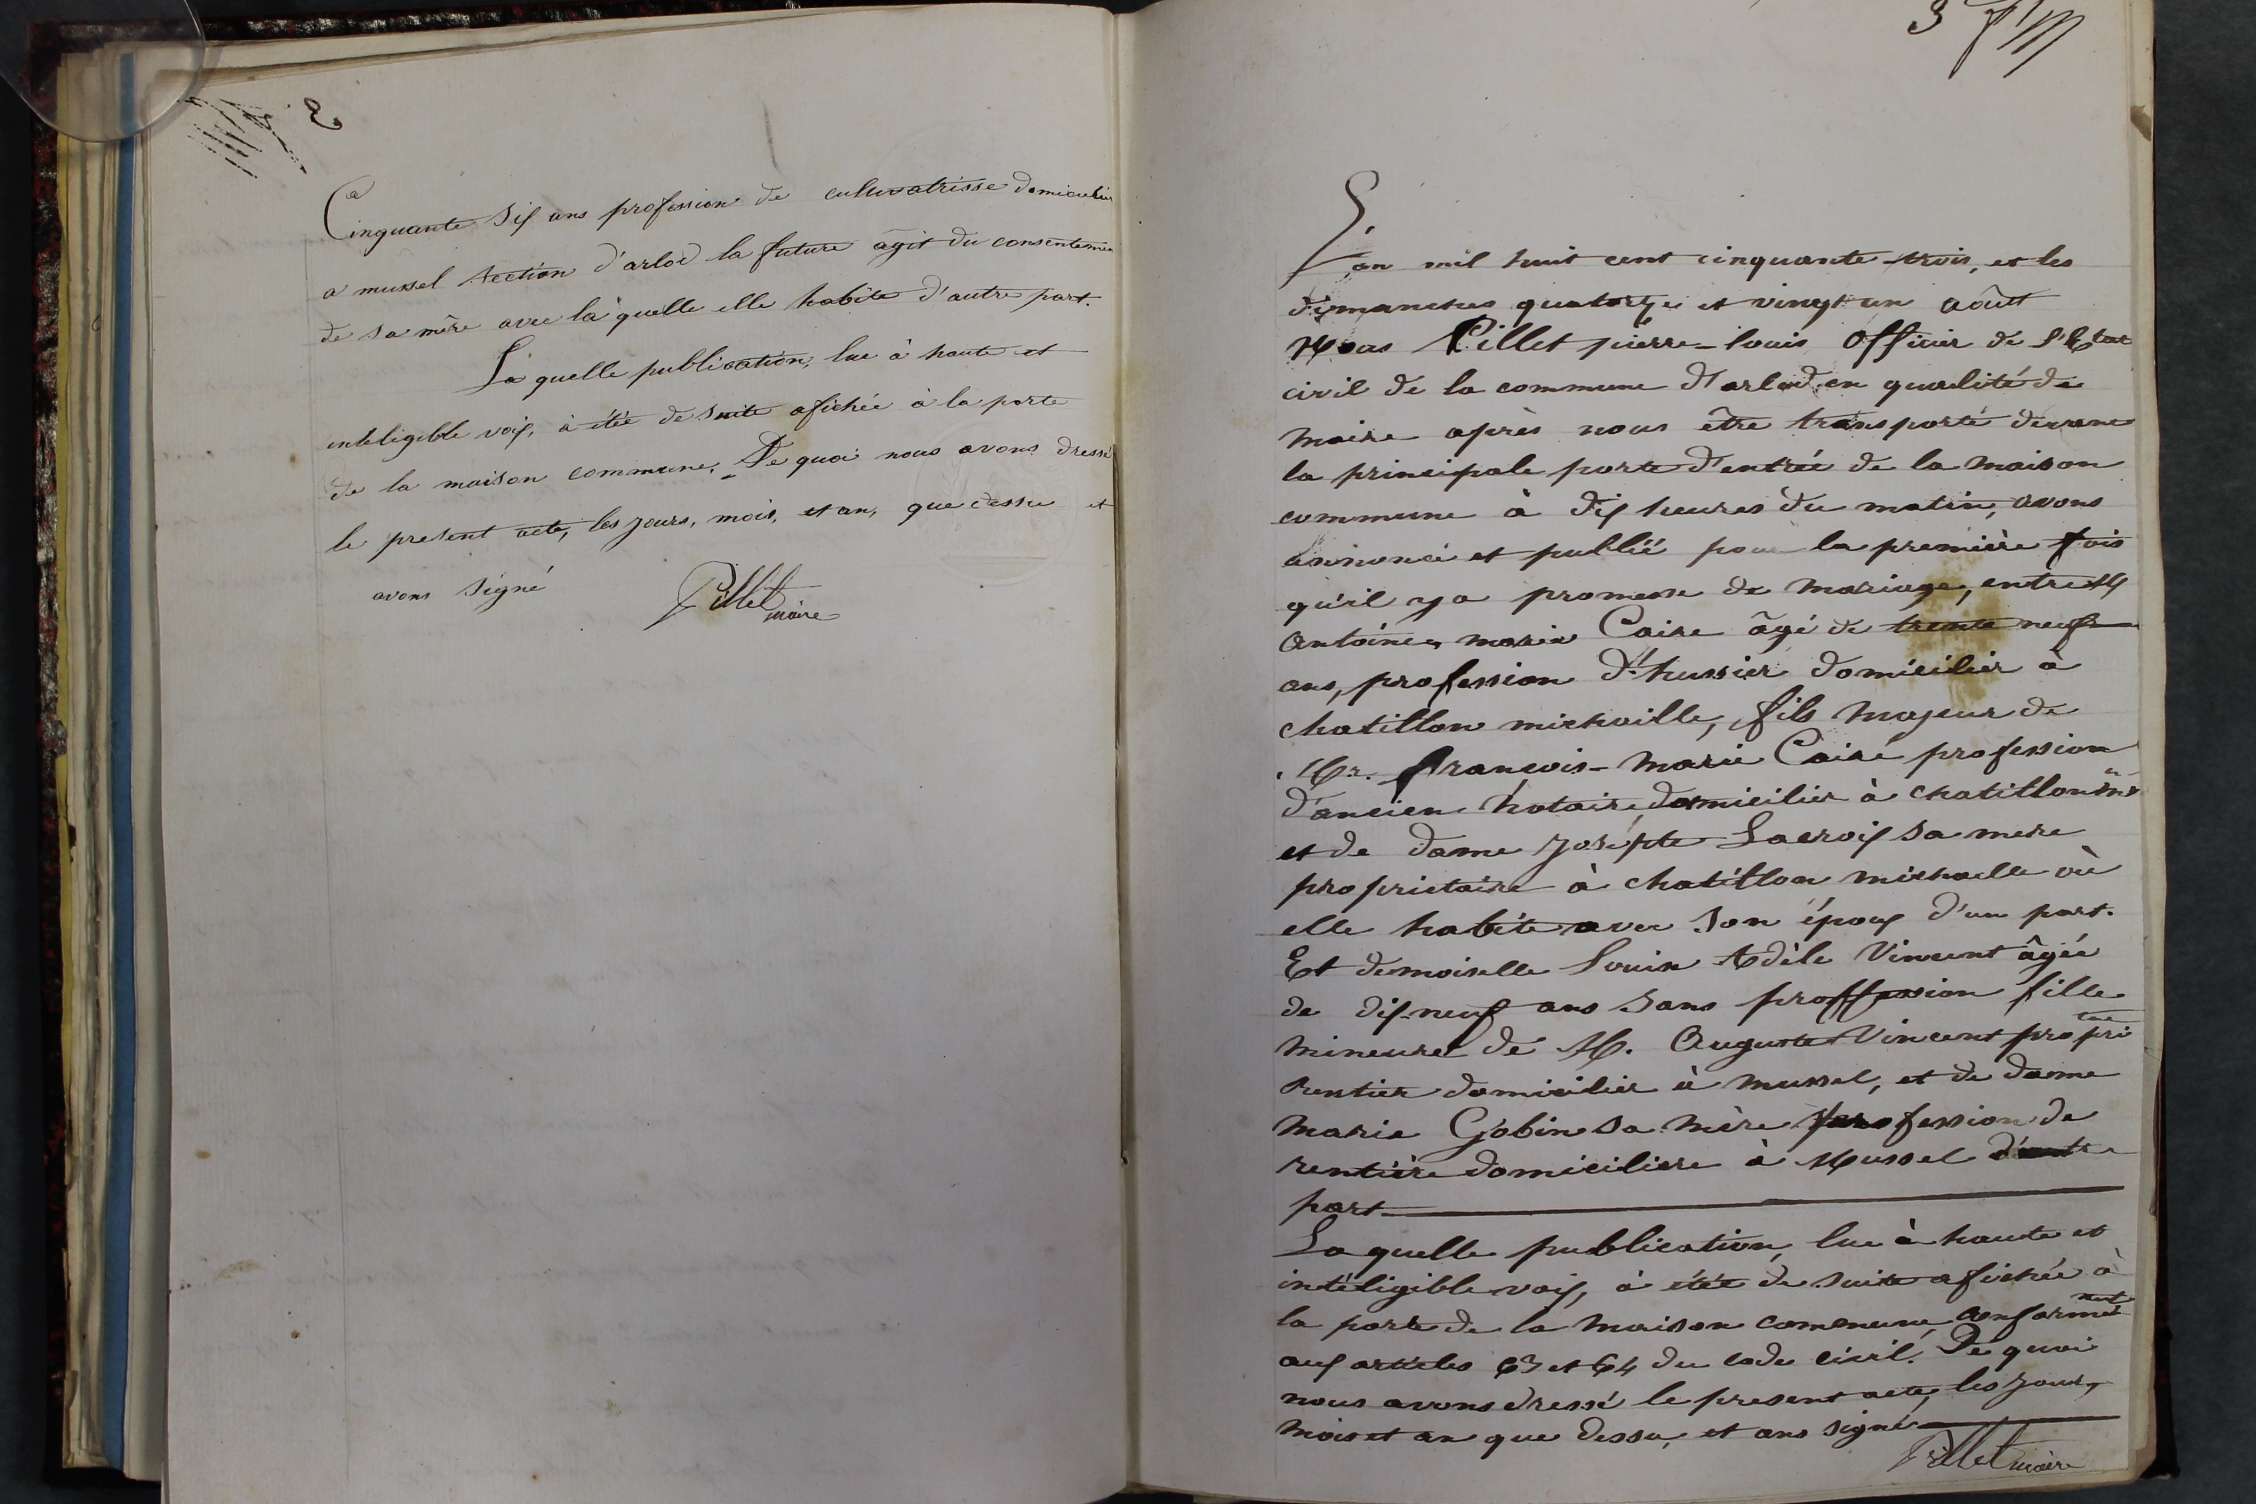 2
Cinquante six ans profession de cultivatrisse domicilier
a mussel section d'arlod la future âgit du consentemen
de sa mère avec là quelle elle habite d'autre part.
Là quelle publication, lue à haute et
inteligible voix, à étée de suite afichée à la porte
de la maison commune. De quoi nous avons dressé
le present acte, les jours, mois, et an, que dessu et
avons signé
Pillet
maire
3
L'an mil huit cent cinquante-trois, et les
dimanches quatorze et vingt un août
Nous Pillet pierre-louis Officier de l'Etat
civil de la commune d'arlod en qualité de
maire après nous être transporté devant
la principale porte d'entrée de la maison
commune à dix heures du matin, avons
annoncé et publié pour la première fois
qu'il y a promesse de mariage, entre M
Antoine marie Caire âgé de trente neuf
ans, profession d'hussier domicilier à
chatillon michaille, fils majeur de
Mr. François-Marie Caire profession
d'ancien notaire, domicilier à chatillon
et de dame Josépte Lacroix sa mere
proprietaire à chatillon michaelle où
elle habite avec son époux d'un part.
Et demoiselle Louise Adèle Vincent âgée
de dix-neuf ans sans proffession fille
mineure de M. Auguste Vincent propri
rentier domicilier à mussel, et de dame
marie Gobin sa mère profession de
rentière domiciliere à Mussel d'autre
part
La quelle publication, lue à haute et
intéligible voix, à étée de suite afichée à
la porte de la maison commune, conformét
aux articles 63 et 64 du code civil. De quoi
nous avons dressé le present acte, les jour,
mois et an que dessu, et ans signé
Pillet maire